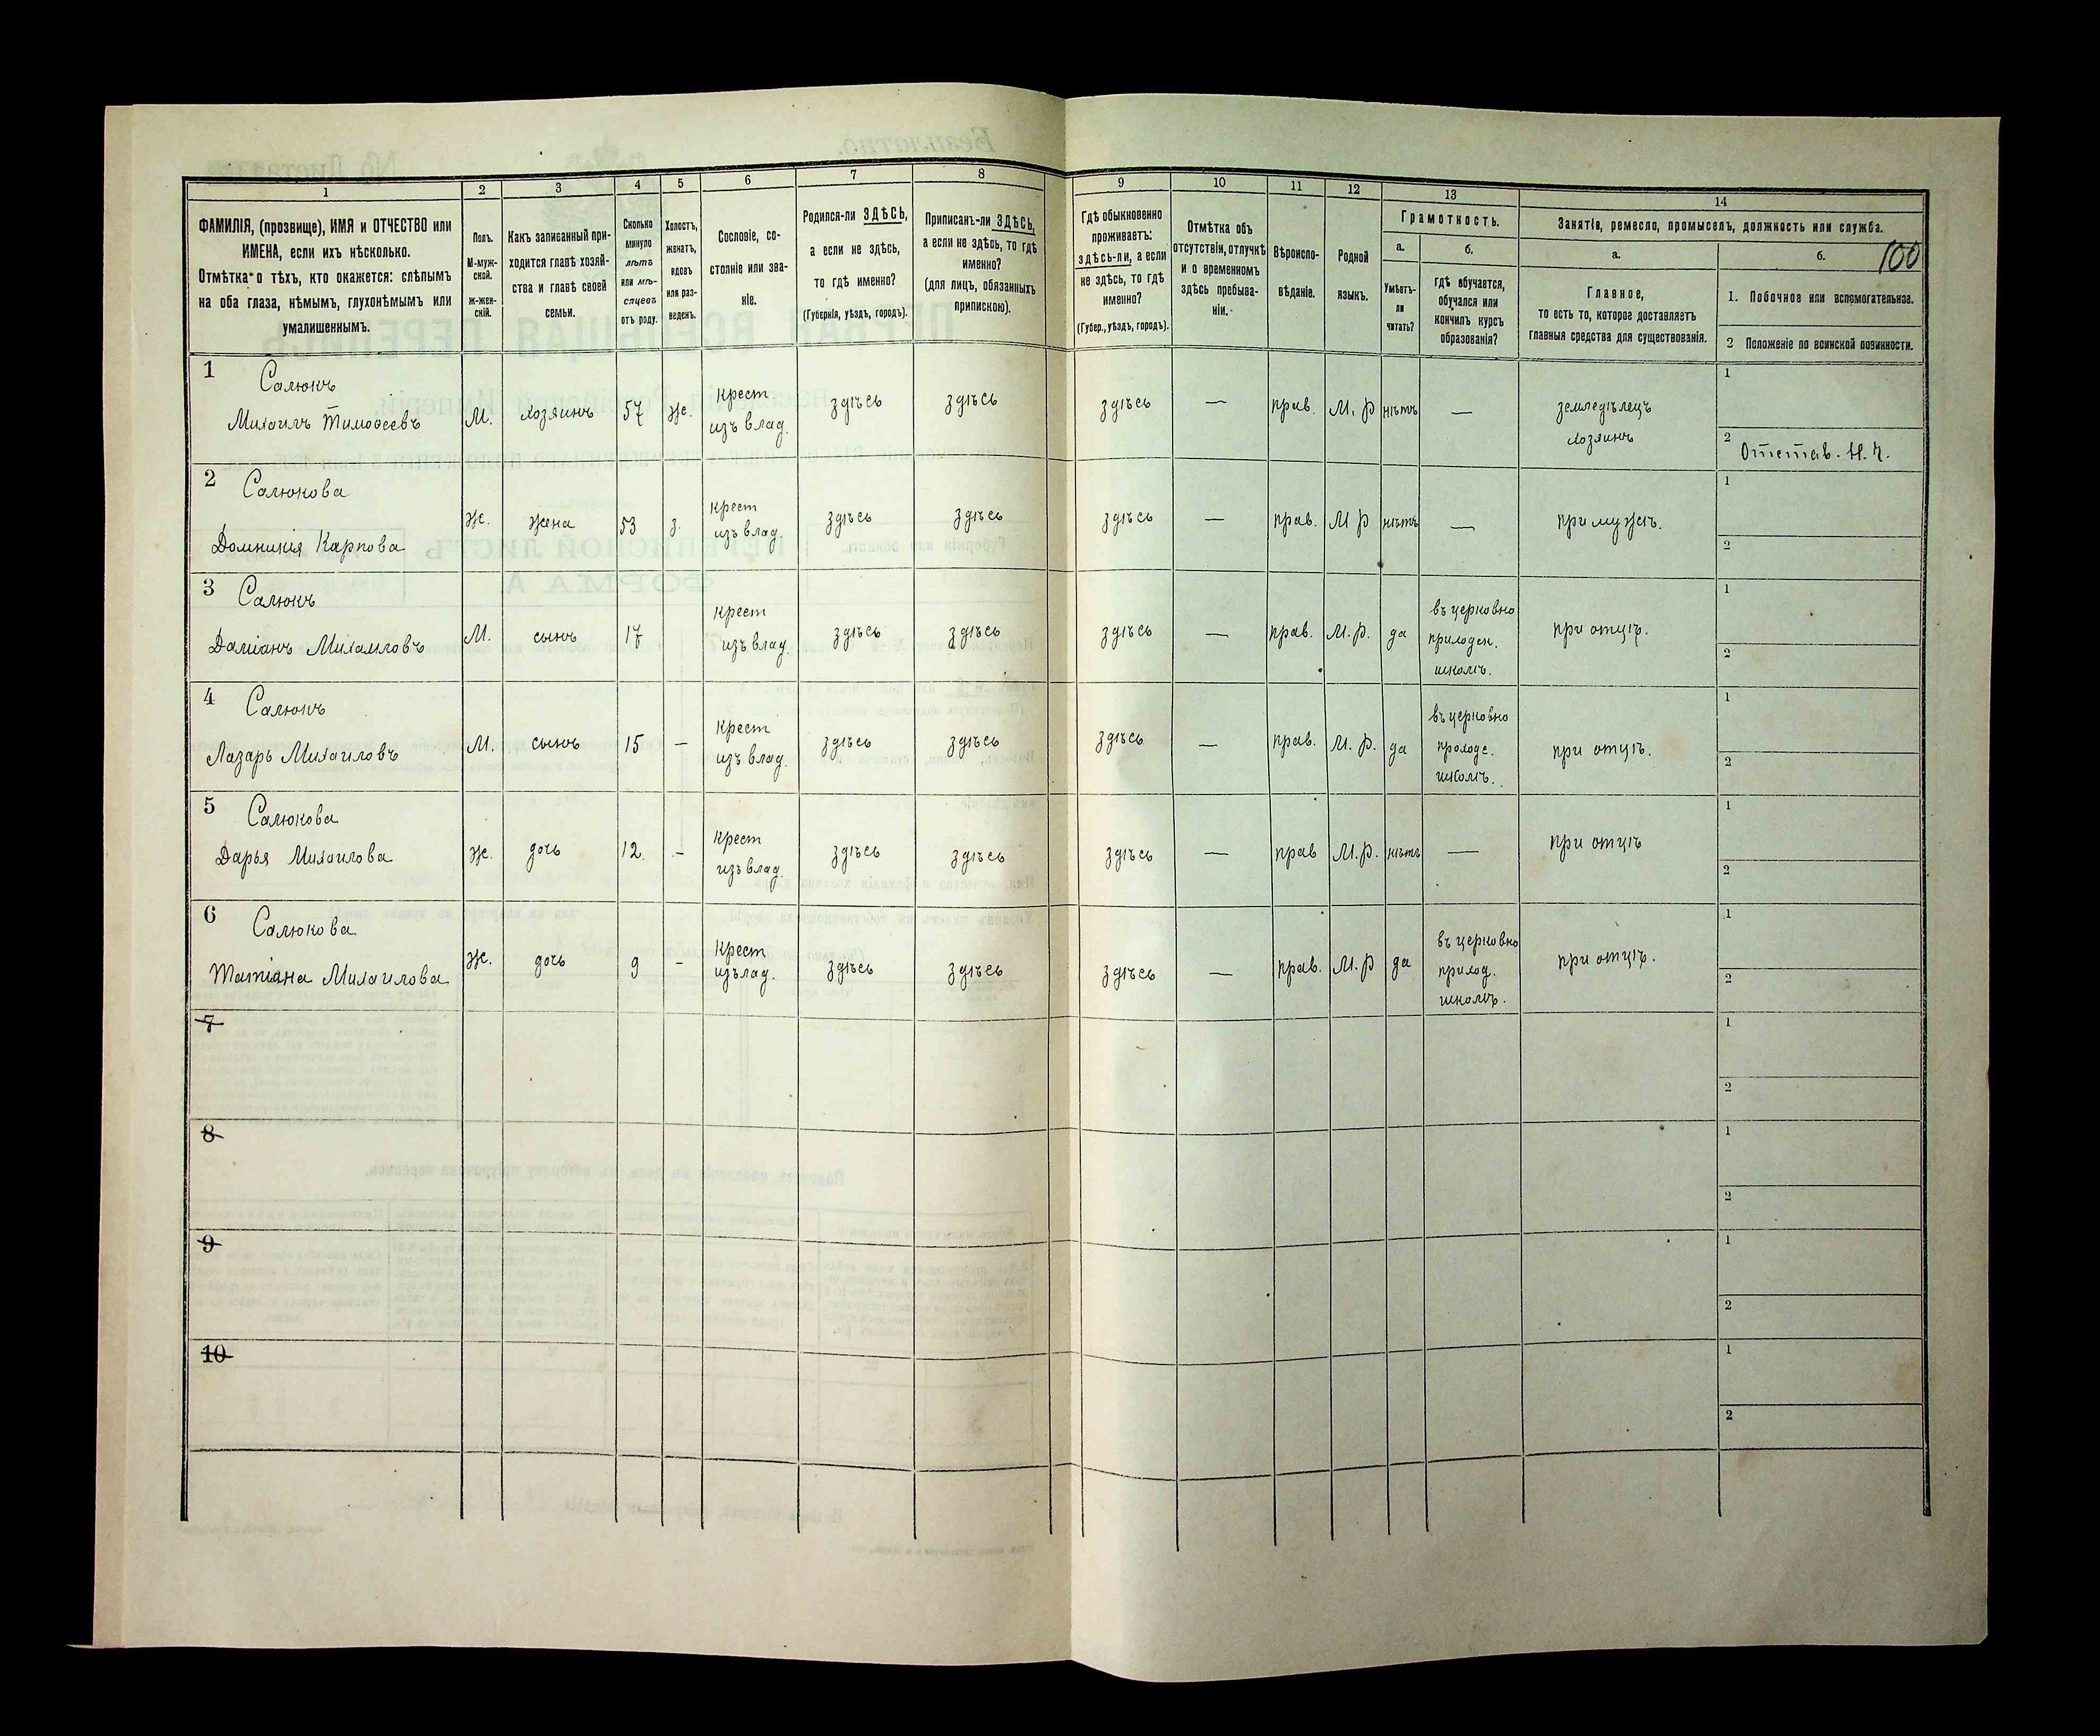 1 2 3 4 5 6 7 8 9 10 11 12 13 14
100
ФАМИЛІЯ, (прозвище), ИМЯ и ОТЧЕСТВО или
ИМЕНА, если ихъ нѣсколько.
Отмѣтка о тѣхъ, кто окажется: слѣпымъ
на оба глаза, нѣмымъ, глухонѣмымъ или
умалишеннымъ.
Полъ.
М-муж-
ской.
Ж-жен-
скій.
Какъ записанный при-
ходится главѣ хозяй-
ства и главѣ своей
семьи.
Сколько
минуло
лѣтъ
или мѣ-
сяцевъ
отъ роду.
Холостъ,
женатъ,
вдовъ
или раз-
веденъ.
Сословіе, со-
стояніе или зва-
ніе.
Родился-ли ЗДѢСЬ,
а если не здѣсь,
то гдѣ именно?
(Губернія, уѣздъ, городъ).
Приписанъ-ли ЗДѢСЬ,
а если не здѣсь, то гдѣ
именно?
(для лицъ, обязанныхъ
припискою).
Гдѣ обыкновенно
проживаетъ:
здѣсь-ли, а если
не здѣсь, то гдѣ
именно?
(Губер., уѣздъ, городъ).
Отмѣтка объ
отсутствіи, отлучкѣ
и о временномъ
здѣсь пребыва-
ніи.
Вѣроиспо-
вѣданіе.
Родной
языкъ.
Грамотность.
а.
Умѣетъ-
ли
читать?
б.
гдѣ обучается,
обучался или
кончилъ курсъ
образованія?
Занятіе, ремесло, промыселъ, должность или служба.
а.
Главное,
то есть то, которое доставляетъ
главныя средства для существованія.
б.
1. Побочное или вспомогательное.
2 Положеніе по воинской повинности.
1
Салюкъ
Михаилъ Тимоѳеевъ
М.
хозяинъ
57
Ж.
крест
изъ влад.
здѣсь
здѣсь
здѣсь
—
прав.
М. р
нѣтъ
—
земледѣлецъ
хозяинъ
1
2
Отстав. Н. Ч.
2
Салюкова
Домникія Карпова
Ж.
жена
53
з.
крест
изъ влад.
здѣсь
здѣсь
здѣсь
—
прав.
М р
нѣтъ
—
при мужѣ.
1
2
3
Салюкъ
Даміанъ Михаиловъ
М.
сынъ
17
крест
изъ влад.
здѣсь
здѣсь
здѣсь
—
прав.
М.р.
да
въ церковно
приходен.
школѣ.
при отцѣ.
1
2
4
Салюкъ
Лазарь Михаиловъ
М.
сынъ
15
—
крест
изъ влад.
здѣсь
здѣсь
здѣсь
—
прав.
М. р.
да
въ церковно
проходс.
школѣ.
при отцѣ.
1
2
5
Салюкова
Дарья Михаилова
Ж.
дочь
12.
—
крест
изъ влад.
здѣсь
здѣсь
здѣсь
—
прав
М.р.
нѣтъ
—
при отцѣ
1
2
6
Салюкова
Татіана Михаилова
Ж.
дочь
9
—
крест
изълад.
здѣсь
здѣсь
здѣсь
—
прав.
М.р
да
въ церковно
приход.
школѣ.
при отцѣ.
1
2
7
1
2
8
1
2
9
1
2
10
1
2